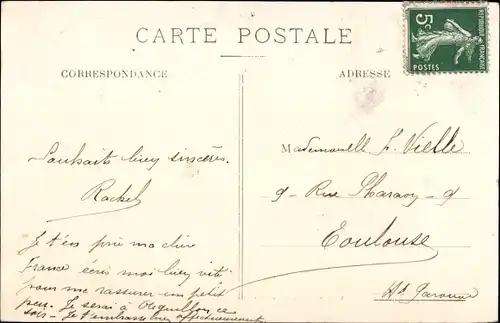 CARTE POSTALE
CORRESPONDANCE
ADRESSE
5c
REPUBLIQUE FRANÇAISE
POSTES
Souhaits bien sincères.
Rachel
Je t'en prie ma chère
France écris moi bien vite
pour me rassurer un petit
peu. Je serai à Aiguillon ce
soir - Je t'embrasse affectueusement
Mademoiselle F. Vielle
9 - Rue Pharaon - 9
Toulouse
Hte Garonne